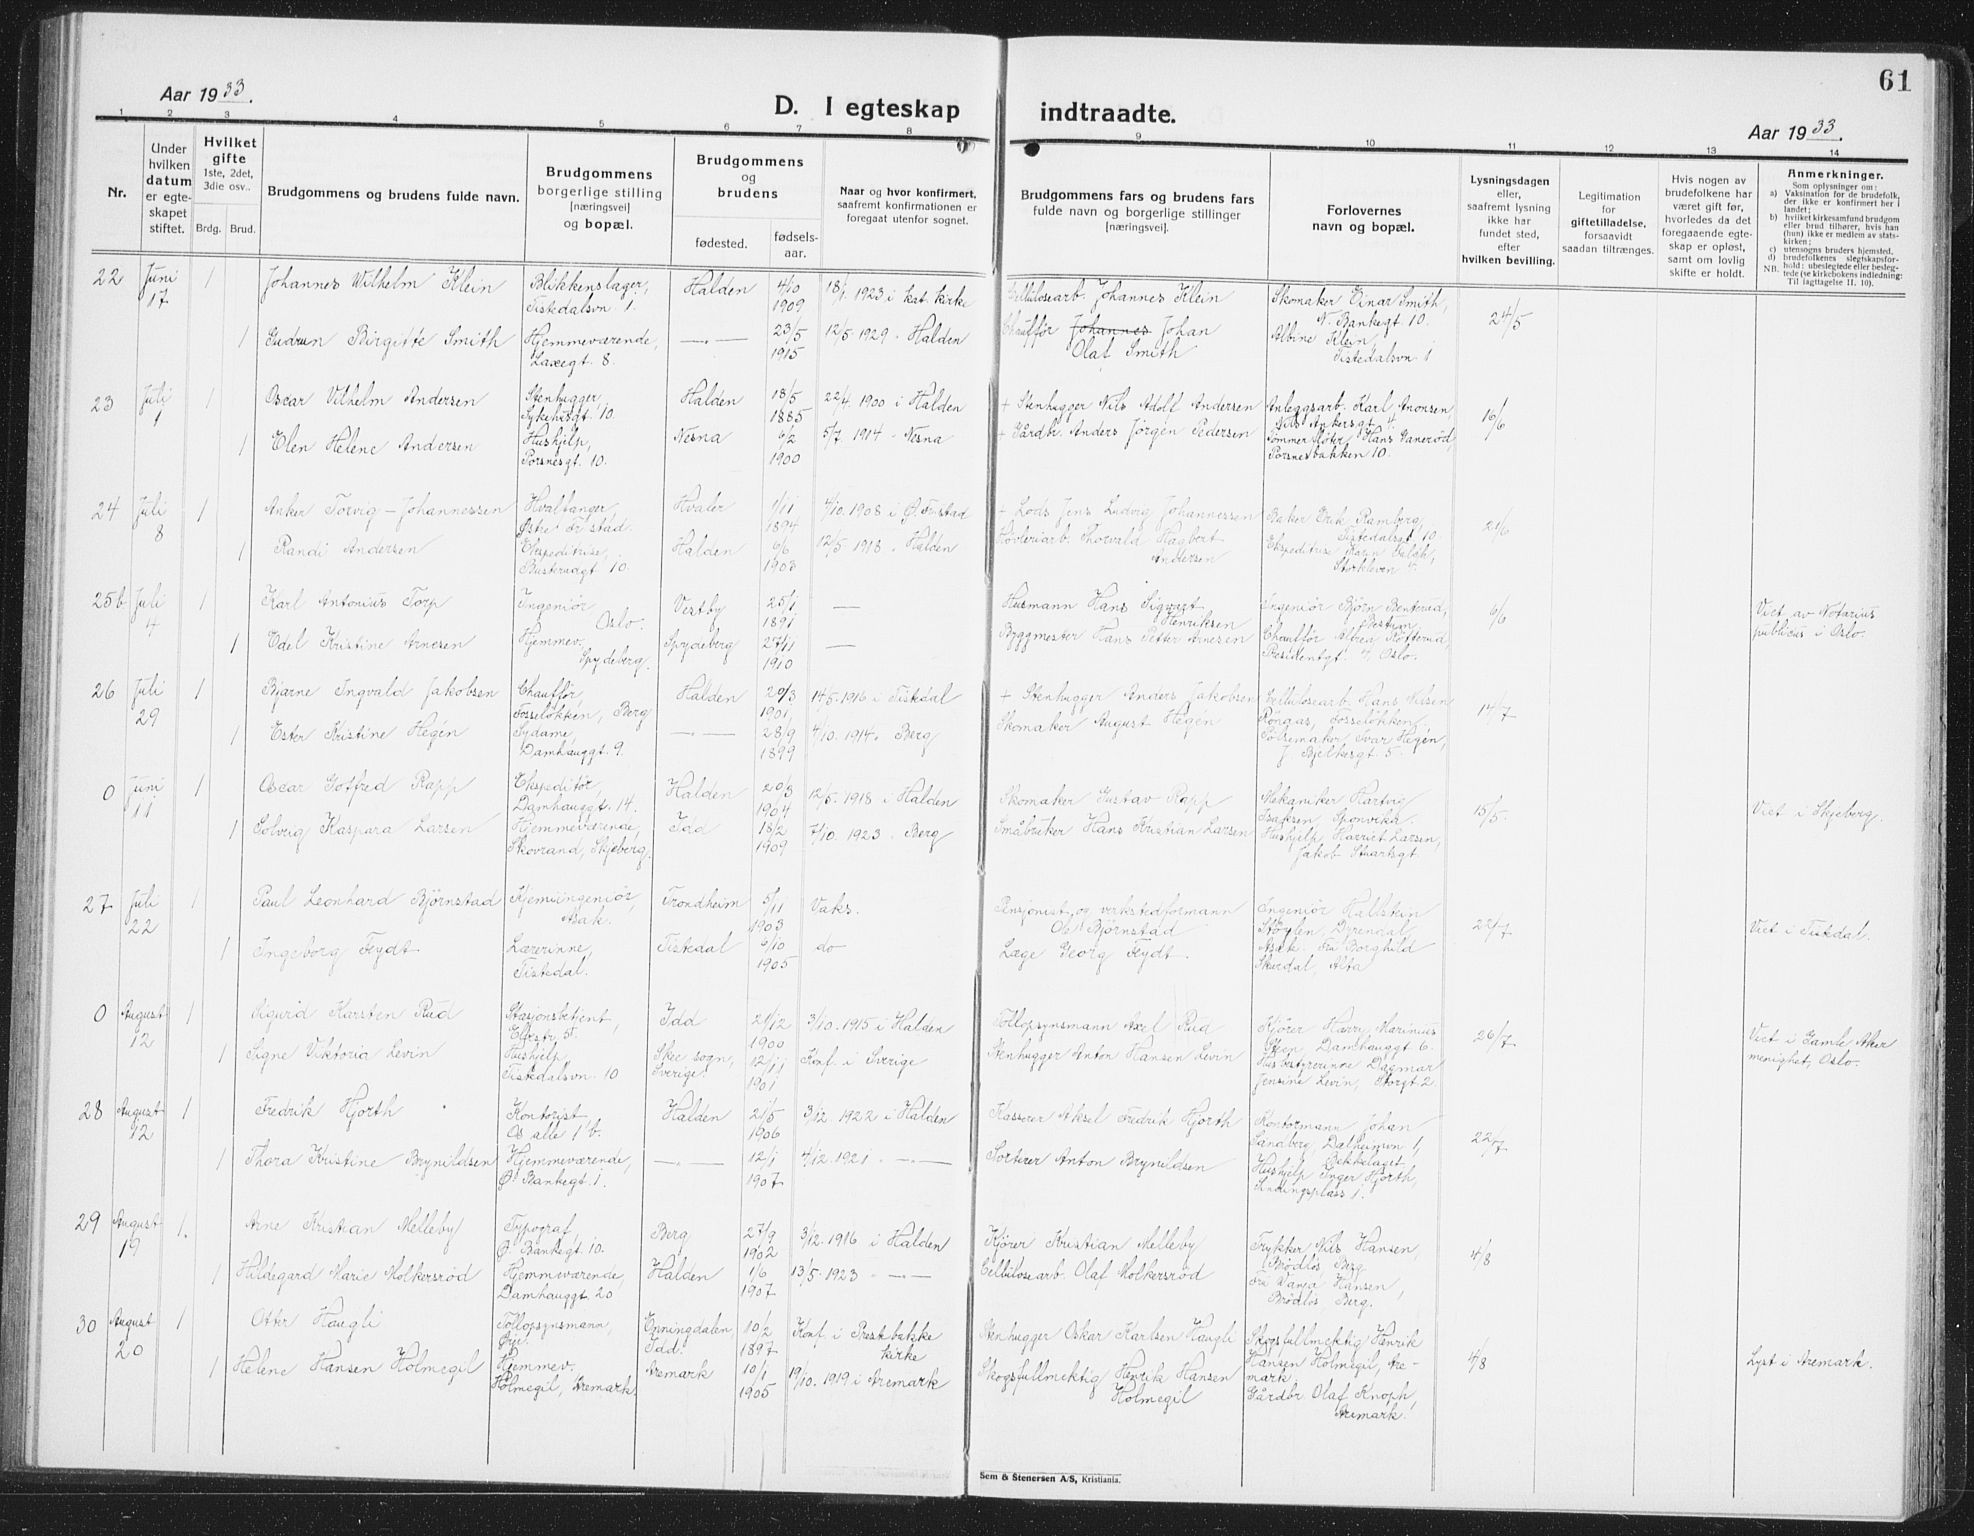 61
Aar 1933.
D. I egteskap indtraadte.
Aar 1933.
1 2 3 4 5 6 7 8 9 10 11 12 13 14
Nr.
Under hvilken datum er egteskapet stiftet.
Hvilket gifte 1ste, 2det, 3die osv..
Brdg. Brud.
Brudgommens og brudens fulde navn.
Brudgommens borgerlige stilling [næringsvei] og bopæl.
Brudgommens og brudens
fødested. fødselsaar.
Naar og hvor konfirmert, saafremt konfirmationen er foregaat utenfor sognet.
Brudgommens fars og brudens fars fulde navn og borgerlige stillinger [næringsvei].
Forlovernes navn og bopæl.
Lysningsdagen eller, saafremt lysning ikke har fundet sted, efter hvilken bevilling.
Legitimation for giftetilladelse, forsaavidt saadan tiltrænges.
Hvis nogen av brudefolkene har været gift før, hvorledes da det foregaaende egteskap er opløst, samt om lovlig skifte er holdt.
Anmerkninger.
Som oplysninger om:
a) Vaksination for de brudefolk, der ikke er konfirmert her i landet;
b) hvilket kirkesamfund brudgom eller brud tilhører, hvis han (hun) ikke er medlem av statskirken;
c) utensogns bruders hjemsted,
d) brudefolkenes slegtskapsforhold: ubeslegtede eller beslegtede (se kirkebokens indledning: Til iagttagelse II. 10).
NB.
22 Juni 17 1 Johannes Wilhelm Klein Blikkenslager, Tistedalsvn 1. Halden 4/10 1909 18/1. 1923 i kat. kirke Cellulosearb. Johannes Klein Skomaker Einar Smith, N. Bankegt 10. 24/5
1 Gudrun Birgitte Smith Hjemmeværende, Laxegt. 8. —„— 23/5 1915 12/5 1929 - Halden Chauffør Johannes Johan Olaf Smith Albine Klein, Tistedalsvn 1
23 Juli 1 1 Oscar Vilhelm Andersen Stenhugger, Sykehusgt. 10. Halden 18/5 1885 22/4. 1900 i Halden + Stenhugger Nils Adolf Andersen Anleggsarb. Karl Aronsen Nils Ankersgt 4. 16/6
1 Elen Helene Andersen Hushjelp, Porsnesgt. 10. Nesna 6/2 1900 5/7. 1914 - Nesna + Gårdbr. Anders Jørgen Pedersen Tømmerfløter Hans Vanerød, Porsnesbakken 10.
24 Juli 8 1 Anker Torvig-Johannessen Hvalfanger, Østre Fr.stad. Hvaler 1/11 1894 4/10. 1908 i Ø. Fr.stad + Lods Jens Ludvig Johannessen Baker Erik Ramberg, Tistedalsgt. 10. 21/6
1 Randi Andersen Ekspeditrise, Busterudgt 10. Halden 6/6 1903 12/5 1918 - Halden Høvleriarb. Thorvald Hagbert Andersen Ekspeditrise Karin Falck, Storkleven 4.
25b Juli 4 1 Karl Antonius Torp Ingeniør Oslo. Vestby 25/1 1891 — Husmann Hans Sigvart Henriksen Ingeniør Bjørn Benterud, 6/6 Viet av Notarius publicus i Oslo.
1 Edel Kristine Arnesen Hjemmev. Spydeberg. Spydeberg 27/11 1910 — Byggmester Hans Petter Arnesen Chauffør Alfred Kotterud, Presidentgt. 4, Oslo.
26 Juli 29 1 Bjarne Ingvald Jakobsen Chauffør, Fosseløkken, Berg Halden 20/3 1901 14/5. 1916 i Tistedal + Stenhugger Anders Jakobsen Cellulosearb. Hans Nilsen Røngas, Fosseløkken. 14/7
1 Ester Kristine Hegén Sydame, Damhauggt. 9. —„— 28/9 1899 4/10. 1914. Berg Skomaker August Hegén Pølsemaker Ivar Hegén, J. Bjelkesgt 5.
0 Juni 11 1 Oscar Gotfred Rapp Ekspeditør, Damhauggt. 14. Halden 20/3 1904 12/5. 1918 i Halden Skomaker Gustav Rapp Mekaniker Hartvig Isaksen, Sponvika. 15/5. Viet i Skjeberg.
1 Solveig Kaspara Larsen Hjemmeværende, Skovrand, Skjeberg. Idd 18/2 1909 7/10. 1923 - Berg Småbruker Hans Kristian Larsen Hushjelp Harriet Larsen, Jakob Stuartsgt.
27 Juli 22 1 Paul Leonhard Bjørnstad Kjemiingeniør, Asak. Trondheim 5/11 1903 Vaks. Pensjonist og verkstedformann Ole Bjørnstad Ingeniør Hallstein Støylen, Dyrendal, Asak. 22/7 Viet i Tistedal.
1 Ingeborg Feydt Lærerinne, Tistedal. Tistedal 6/10 1905 do Læge Georg Feydt. Fru Borghild Skurdal, Alta
0 August 12 1 Sigurd Karsten Rud Stasjonsbetjent, Elvestr. 5. Idd 21/12 1900 3/10. 1915 i Halden Tollopsynsmann Axel Rud Kjører Harry Marinius Steen Damhauggt 6. 26/7 Viet i Gamle Aker menighet, Oslo.
1 Signe Viktoria Levin Hushjelp, Tistedalsvn. 10 Skee sogn, Sverige. 12/11 1901 Konf. i Sverige Stenhugger Anton Hansen Levin Husbestyrerinne Dagmar Jensine Levin, Storgt 2.
28 August 12 1 Fredrik Hjorth Kontorist Os alle 1 b. Halden 21/5 1906 3/12. 1922 i Halden Kasserer Aksel Fredrik Hjorth Kontormann Johan Sandberg, Dalheimvn 1, Bekkelaget 22/7
1 Thora Kristine Brynildsen Hjemmeværende, Ø. Bankegt. 1. —„— 12/1 1907 4/12. 1921 - —„— Sorterer Anton Brynildsen Hushjelp Inger Hjorth, 1.
29 August 19 1. Arne Kristian Melleby Typograf, Ø. Bankegt. 10. Berg 27/9 1902 3/12. 1916 i Halden Kjører Kristian Melleby Trykker Nils Hansen, Brødløs Berg 4/8
1 Hildegard Marie Molkersrød Hjemmeværende, Damhauggt. 20 Halden 1/6 1907 13/5. 1923 - —„— Cellulosearb. Olaf Molkersrød Fru Vanja Hansen, Brødløs, Berg.
30 August 20 1 Otter Haugli Tollopsynsmann, Ørje. Enningdalen, Idd. 10/2 1897 Konf. i Prestebakke kirke Stenhugger Oskar Karlsen Haugli Skogsfullmektig Henrik Hansen Holmegil, Aremark 4/8 Lyst i Aremark.
1 Helene Hansen Holmegil Hjemmev. Holmegil, Aremark. Aremark 10/1 1905 19/10. 1919 i Aremark Skogsfullmektig Henrik Hansen Holmegil Gårdbr. Olaf Knoph, Aremark.
Sem & Stenersen A/S, Kristiania.